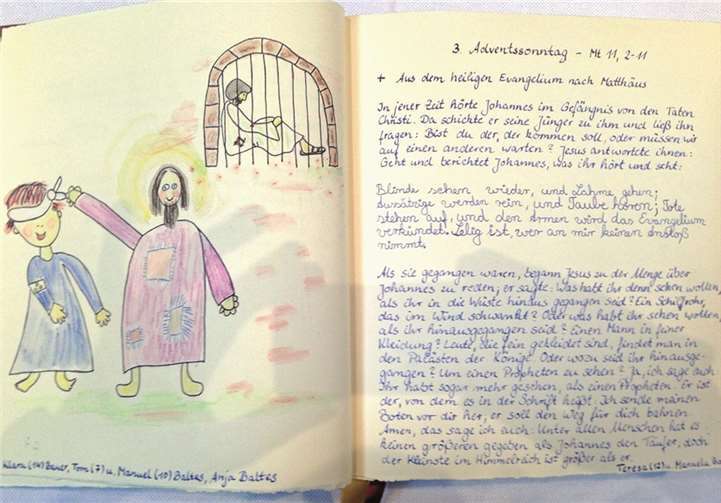 Klara (14) Bauer, Tom (7) u. Manuel (10) Baltes, Anja Baltes
3. Adventssonntag - Mt 11, 2-11
+ Aus dem heiligen Evangelium nach Matthäus
In jener Zeit hörte Johannes im Gefängnis von den Taten
Christi. Da schickte er seine Jünger zu ihm und ließ ihn
fragen: Bist du der, der kommen soll, oder müssen wir
auf einen anderen warten? Jesus antwortete ihnen:
Geht und berichtet Johannes, was ihr hört und seht:
Blinde sehen wieder, und Lahme gehen;
Aussätzige werden rein, und Taube hören; Tote
stehen auf, und den Armen wird das Evangelium
verkündet. Selig ist, wer an mir keinen Anstoß
nimmt.
Als sie gegangen waren, begann Jesus zu der Menge über
Johannes zu reden; er sagte: Was habt ihr denn sehen wollen,
als ihr in die Wüste hinaus gegangen seid? Ein Schilfrohr,
das im Wind schwankt? Oder was habt ihr sehen wollen,
als ihr hinausgegangen seid? Einen Mann in feiner
Kleidung? Leute, die fein gekleidet sind, findet man in
den Palästen der Könige. Oder wozu seid ihr hinausge-
gangen? Um einen Propheten zu sehen? Ja, ich sage euch:
Ihr habt sogar mehr gesehen, als einen Propheten. Er ist
der, von dem es in der Schrift heißt: Ich sende meinen
Boten vor dir her; er soll den Weg für dich bahnen.
Amen, das sage ich euch: Unter allen Menschen hat es
keinen größeren gegeben als Johannes den Täufer, doch
der Kleinste im Himmelreich ist größer als er.
Teresa (12) u. Manuela